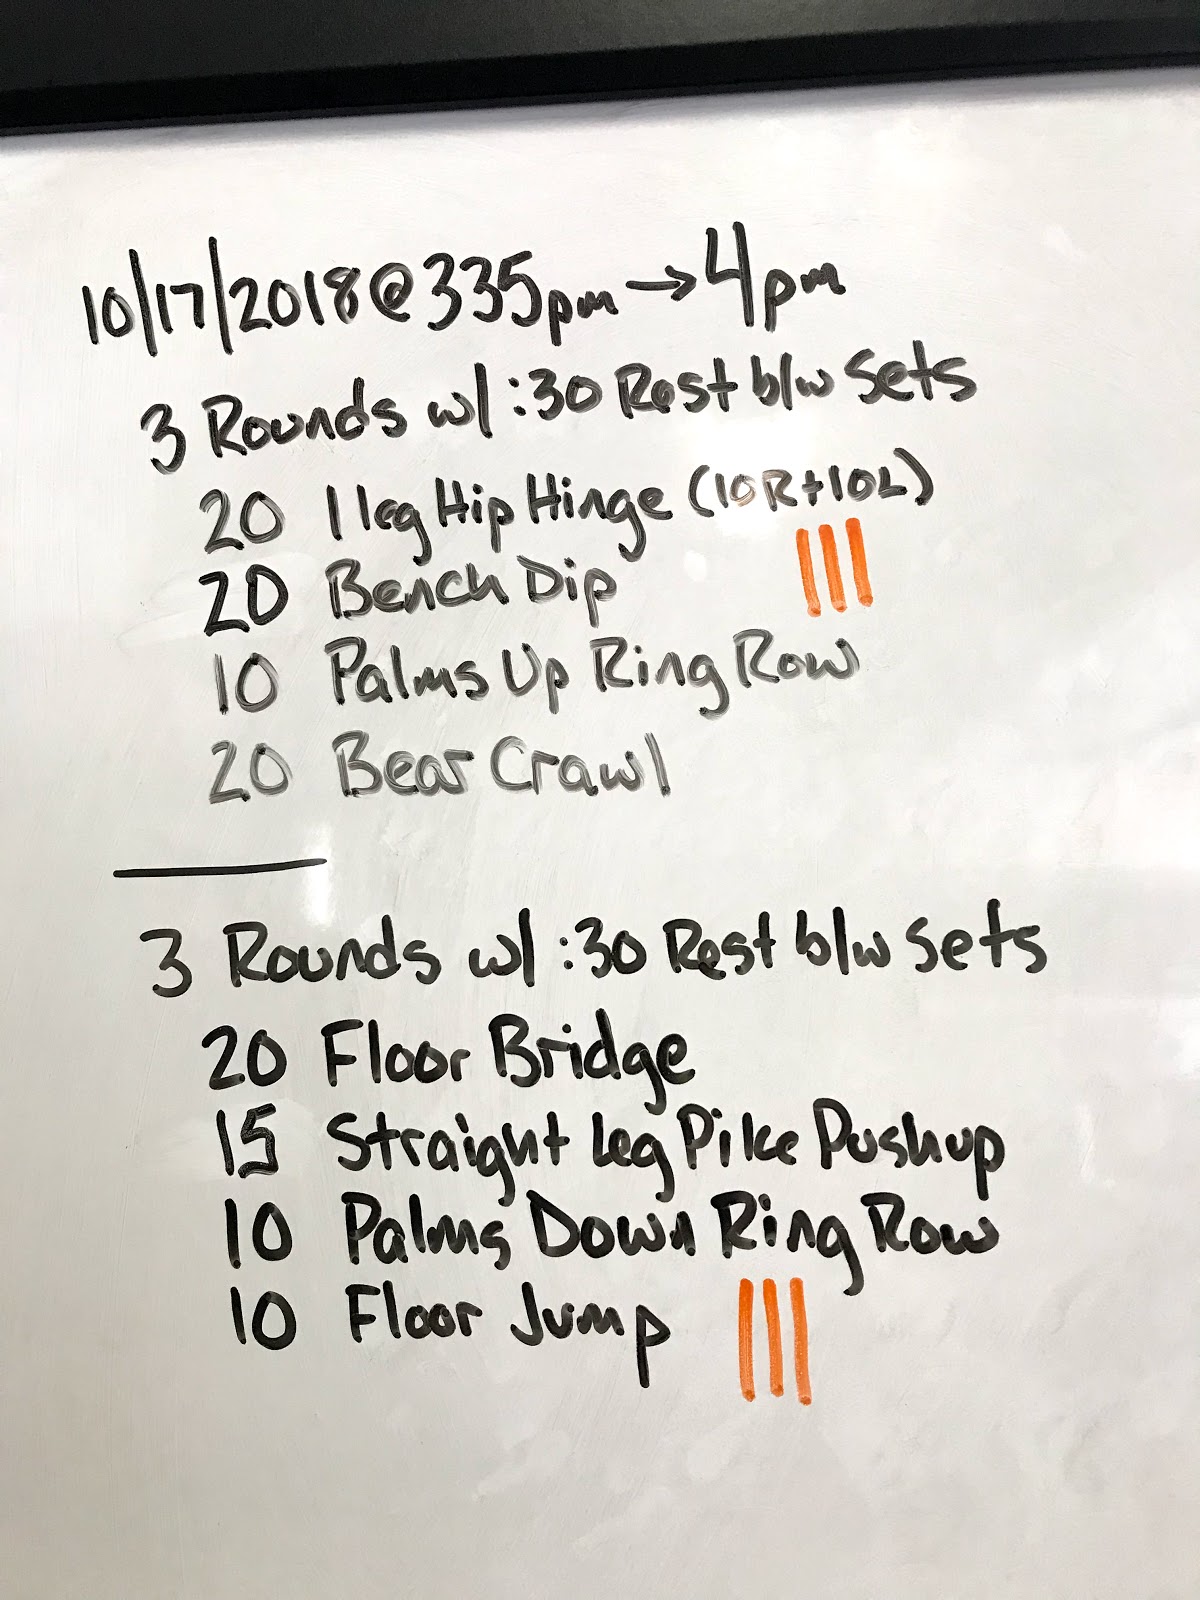 10/17/2018 @ 335pm → 4pm
3 Rounds w/ :30 Rest b/w Sets
20 1 leg Hip Hinge (10R+10L)
20 Bench Dip
|||
10 Palms Up Ring Row
20 Bear Crawl
3 Rounds w/ :30 Rest b/w Sets
20 Floor Bridge
15 Straight leg Pike Pushup
10 Palms Down Ring Row
10 Floor Jump
|||